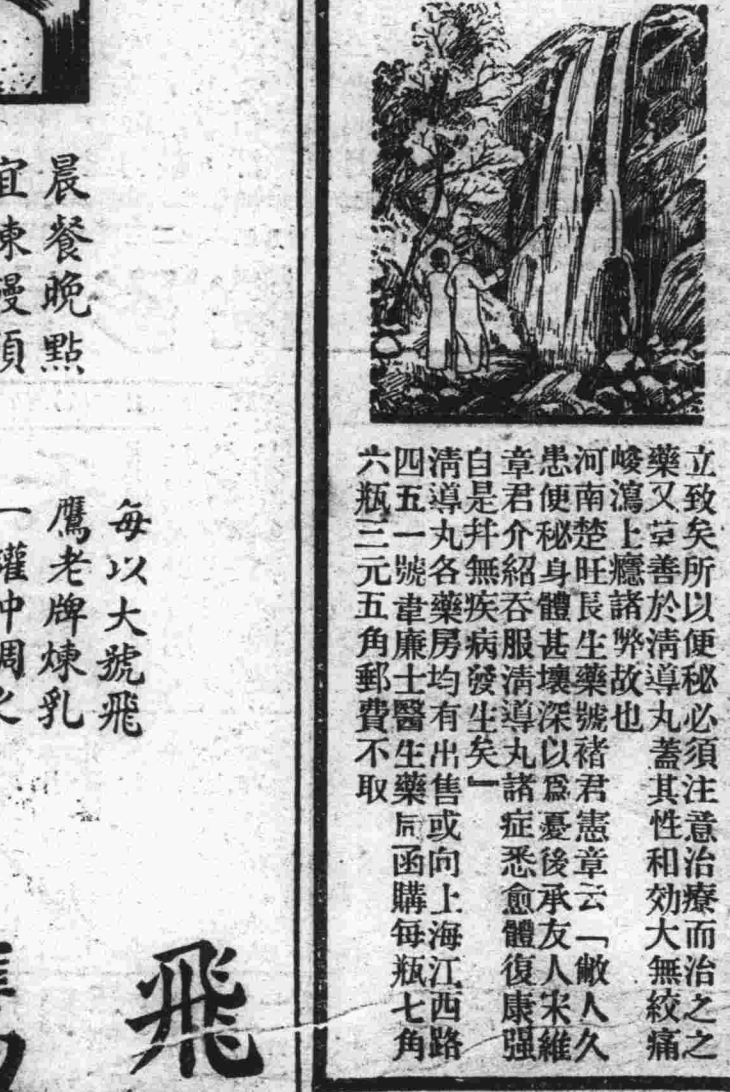 立致矣所以便秘必須注意治療而治之之
藥又莫善於清導丸蓋其性和効大無絞痛
峻瀉上癮諸弊故也
河南楚旺長生藥號褚君憲章云「敝人久
患便秘身體甚壞深以爲憂後承友人宋維
章君介紹吞服清導丸諸症悉愈體復康强
自是幷無疾病發生矣」
清導丸各藥房均有出售或向上海江西路
四五一號韋廉士醫生藥局函購每瓶七角
六瓶三元五角郵費不取
晨餐晚點
宜
每以大號飛
鷹老牌煉乳
一罐冲調之
飛